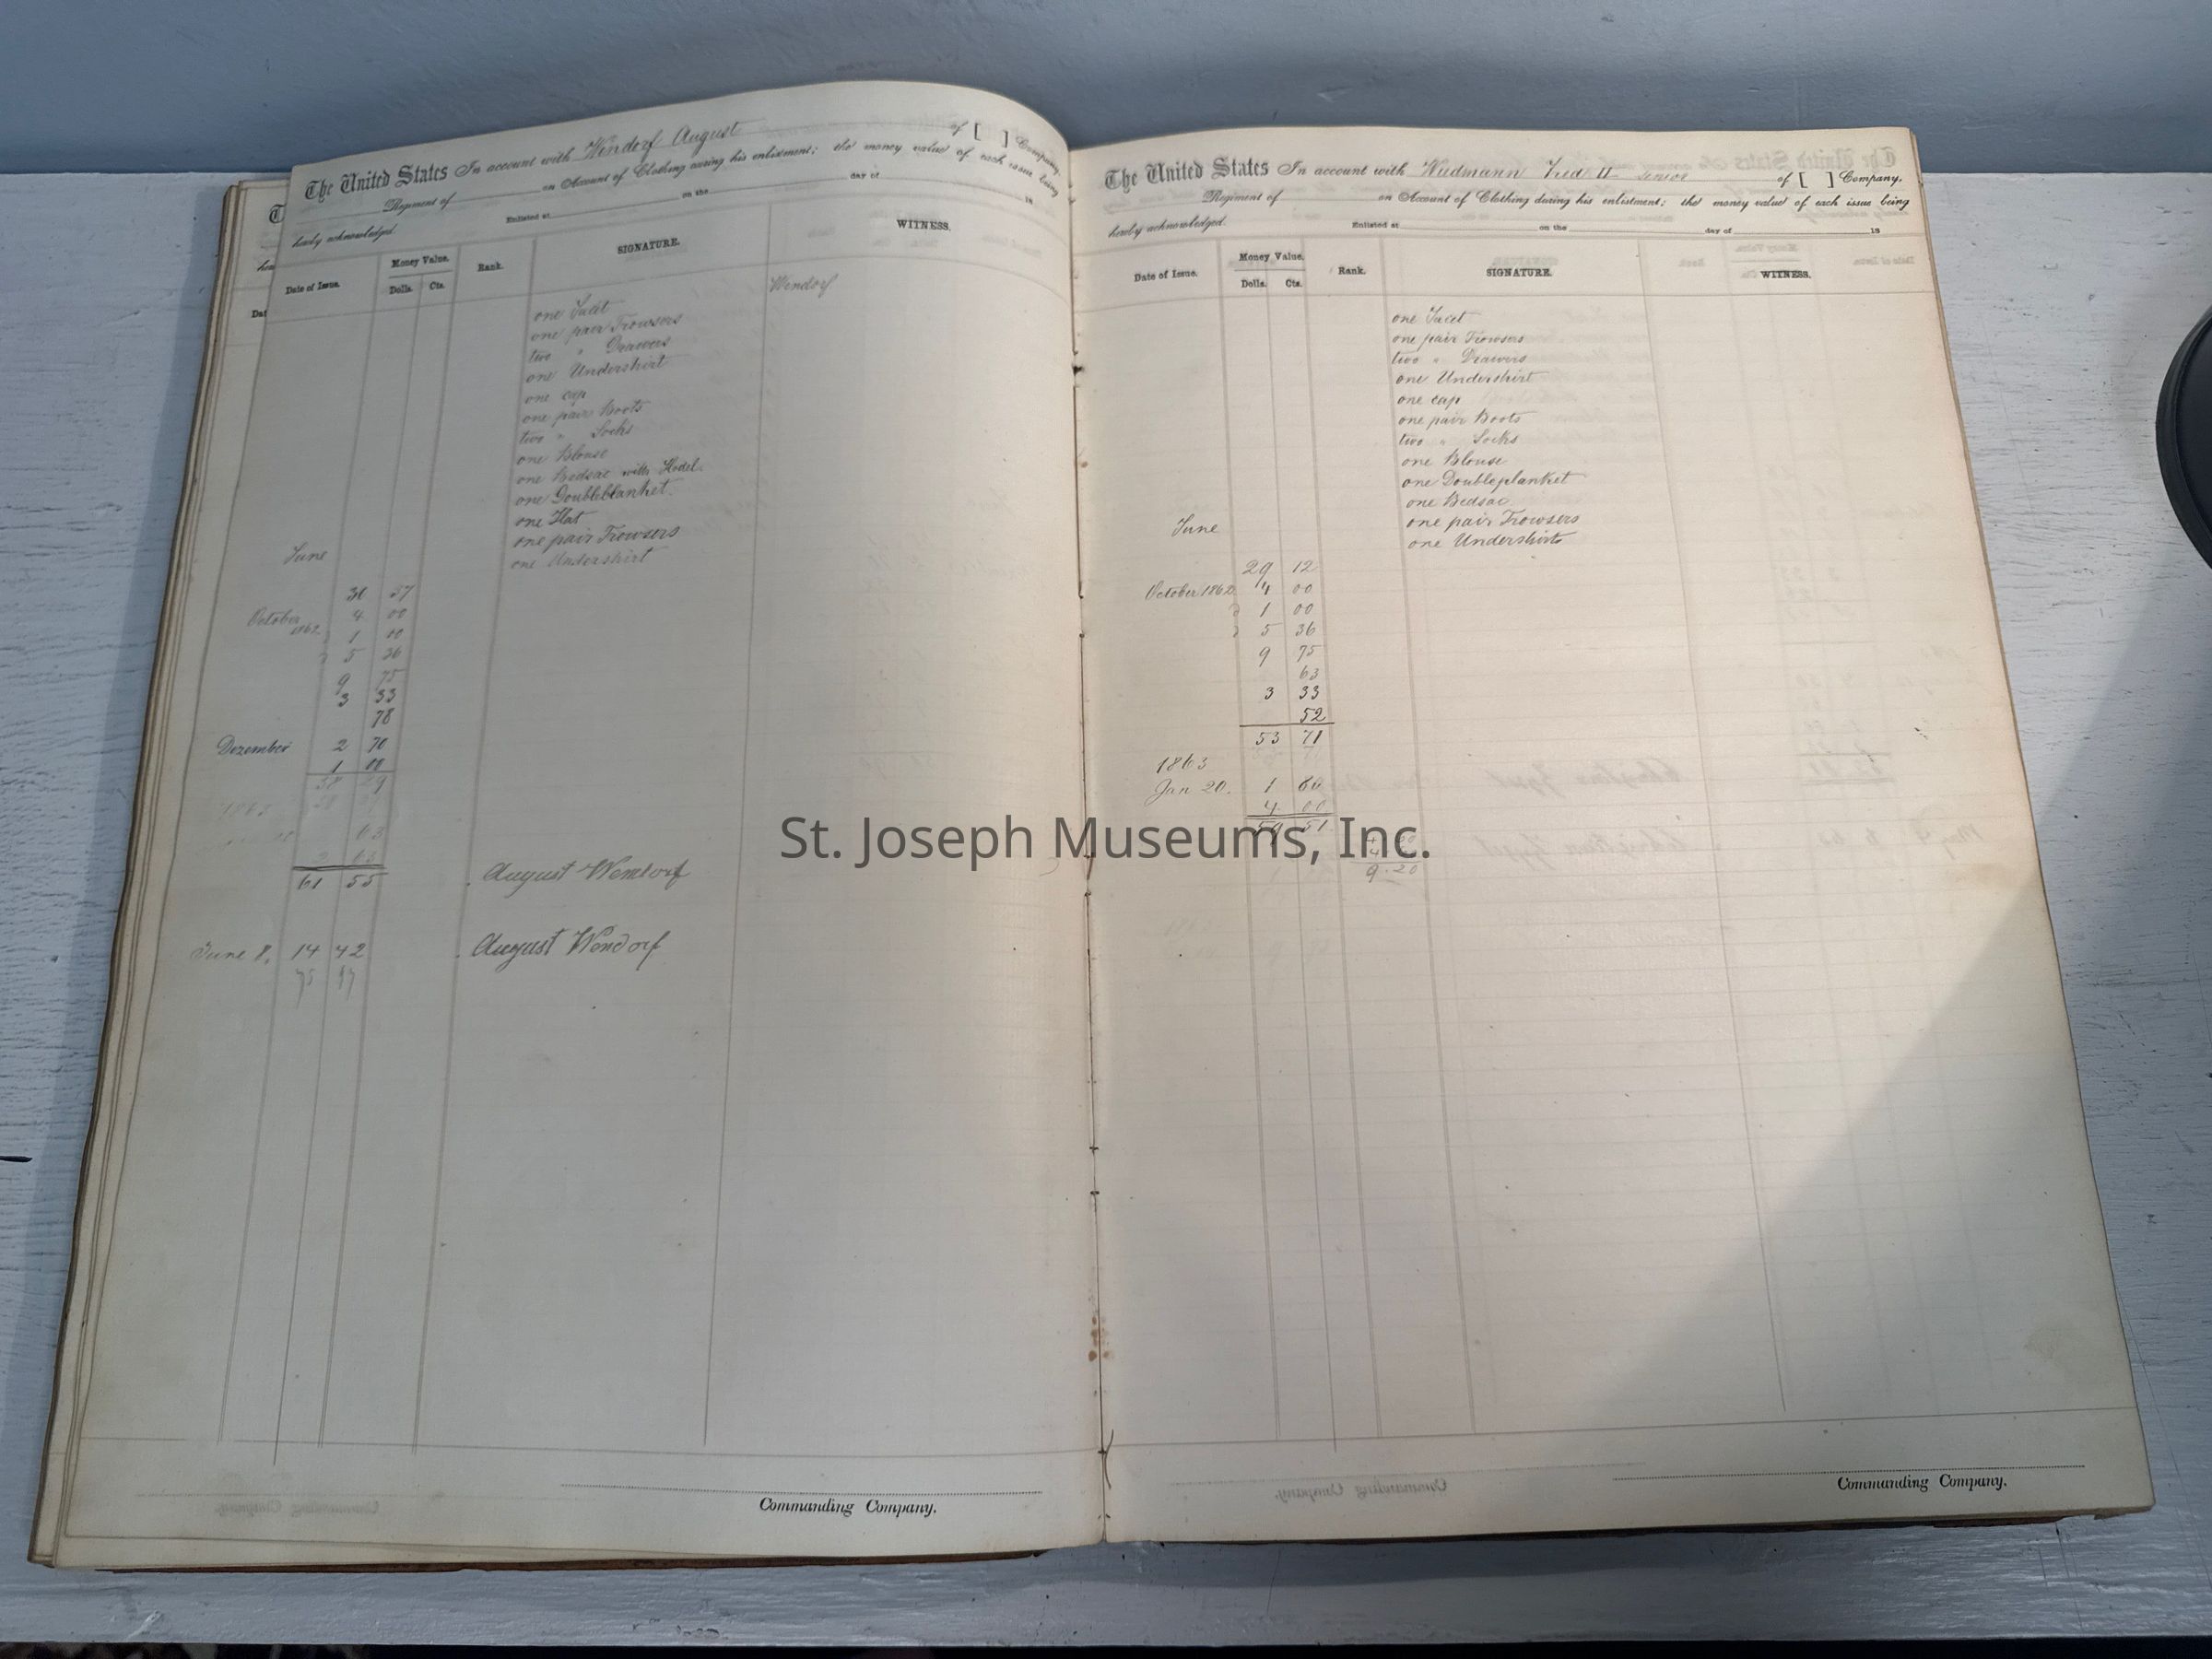 The United States In account with Wendorf August of [ ] Company,
Regiment of on Account of Clothing during his enlistment; the money value of each issue being
hereby acknowledged. Enlisted at on the day of 18
Date of Issue. Money Value. Dolls. Cts. Rank. SIGNATURE. WITNESS.
Wendorf
one Jacet
one pair Trowsers
two " Drawers
one Undershirt
one cap
one pair Boots
two " Socks
one Blouse
one Bedsac with Hodel.
one Doubleblanket.
one Hat
one pair Trowsers
June one Undershirt
36 57
October 1862 4 00
1 00
5 36
9 75
3 33
78
Dezember 2 70
1 00
1863
61 55 August Wendorf
June 8. 14 42 August Wendorf
Commanding Company.
The United States In account with Wiedmann Fred II senior of [ ] Company.
Regiment of on Account of Clothing during his enlistment; the money value of each issue being
hereby acknowledged. Enlisted at on the day of 18
Date of Issue. Money Value. Dolls. Cts. Rank. SIGNATURE. WITNESS.
one Jacet
one pair Trowsers
two " Drawers
one Undershirt
one cap
one pair Boots
two " Socks
one Blouse
one Doubleplanket
one Bedsac
June one pair Trowsers
one Undershirts
29 12
October 1862 4 00
1 00
5 36
9 75
63
3 33
52
53 71
1863
Jan 20. 1 60
4 00
9.20
Commanding Company.
St. Joseph Museums, Inc.